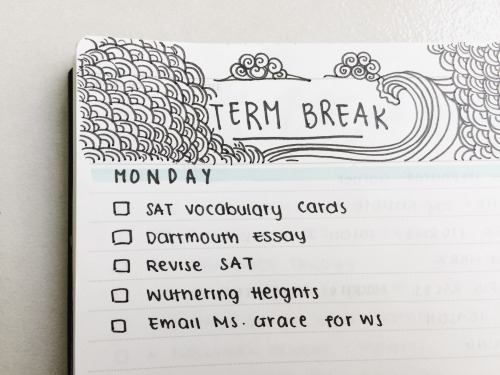 TERM BREAK
MONDAY
SAT vocabulary cards
Dartmouth Essay
Revise SAT
Wuthering Heights
Email Ms. Grace for WS